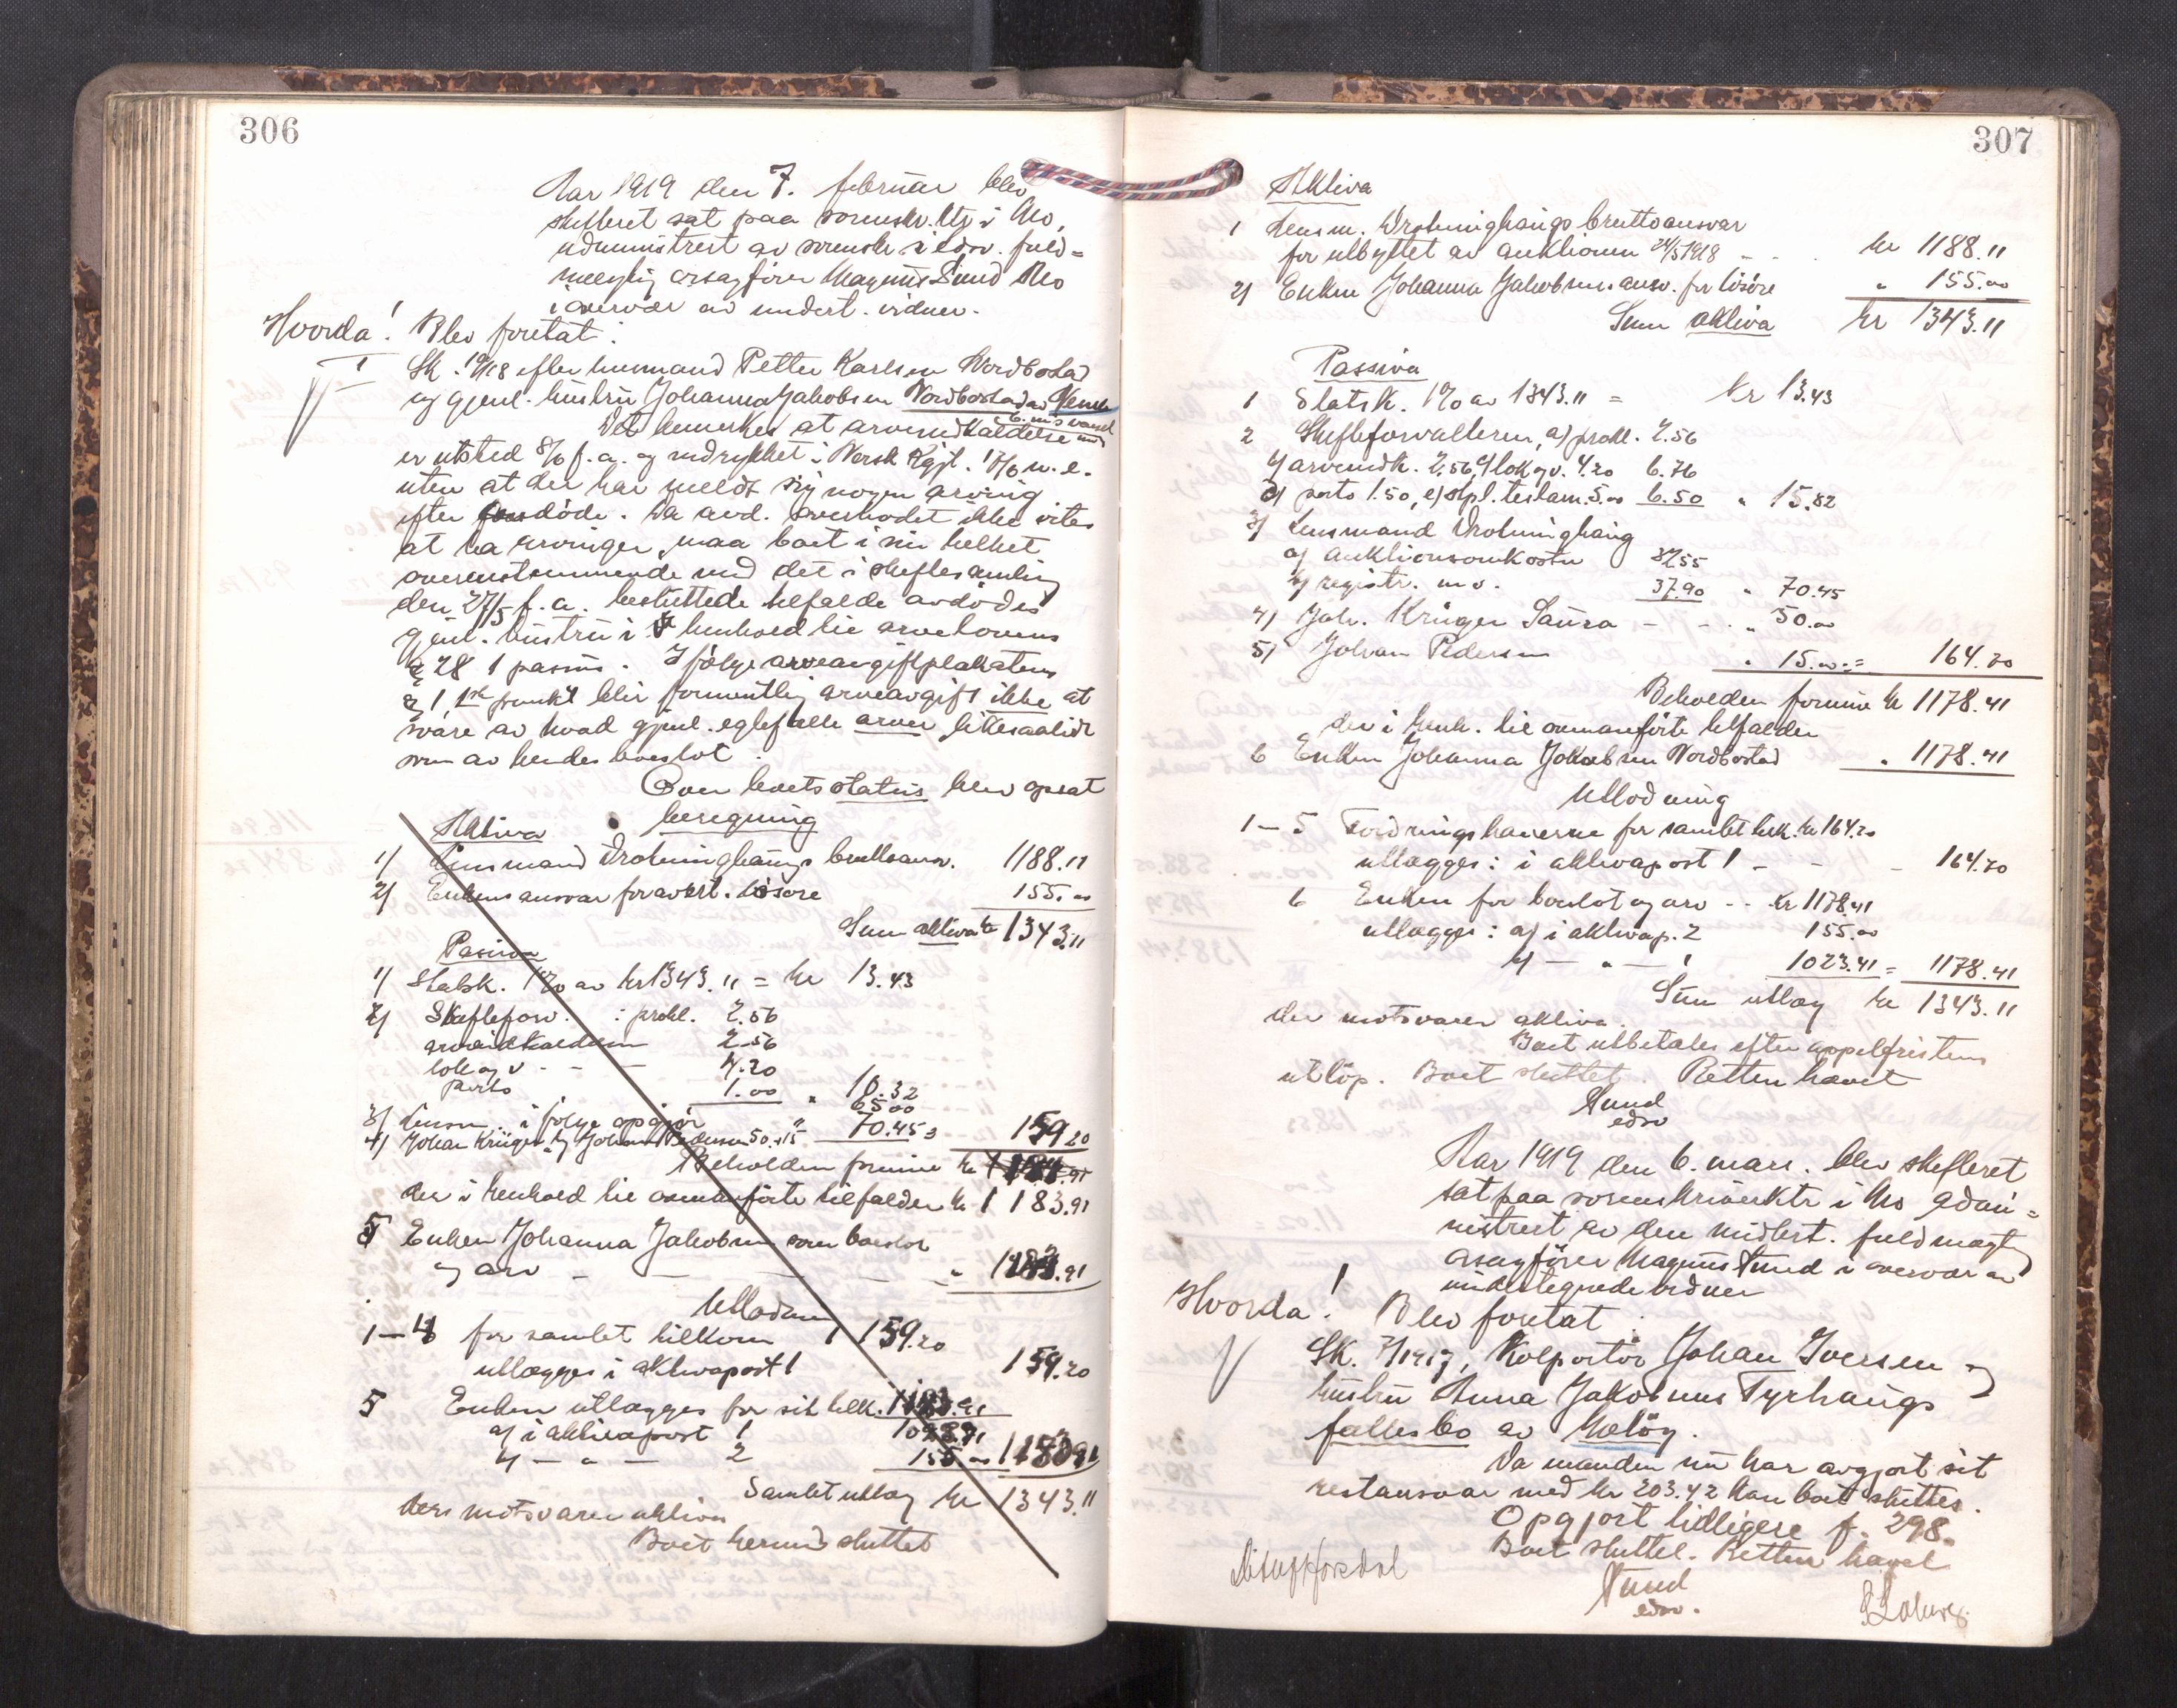 306
Aar 1919 den 7. februar blev
skifteret sat paa sorenskr.ktr i Mo,
administrert av sorenskr. i edsv. fuld=
mægtig orsagfører Magnus Lund Mo
i overvær av undert. vidner.
Hvorda! Blev foretat:
I
Sk. 19/18 efter husmand Petter Karlsen Nordbostad
og gjenl. hustru Johanna Jakobsen Nordbostad av
Det bemerkes at arveindkaldelse
er utsted 8/6 f.a. og indrykket i Norsk Kgjt.
uten at der har meldt sig nogen arving
efter døde. Da avd. overhodet ikke vites
at ha arvinger, maa boet i sin helhet
overenstemmende med det i skiftesamling
den 27/5 f.a. besluttede tilfalde avdødes
gjenl. hustru i henhold til arvelovens
§ 28 1 passus. Ifølge arveavgiftplakatens
§ 1, 1ste punkt blir formentlig arveavgift ikke at
svare av hvad gjenl. egtefælle arver likesaalidt
som av hendes boeslot.
Over boets status blev opsat
beregning
Aktiva
1) Lensmand Drotninghaugs bruttoansv. 1188.11
2) Enkens ansvar for avert. løsøre 155.00
Sum aktiva kr 1343.11
Pasiva
1) Statsk. 1% av kr 1343.11 = kr 13.43
2) Skifteforv. : prokl. 2.56
arveindkaldelsen 2.56
lok og v - - - 4.20
porto 1.00 " 10.32
65.00
3) Lensm. i følge opgjør " 70.45
4) Johan Krüger og Johan Pedersen 50 + 15 159.20
Beholden formue kr
der i henhold til ovenanførte tilfalder kr 1183.91
5 Enken Johanna Jakobsen som boeslot
og arv - - - - "
Utlodning
1-4 for samlet tilkom 159.20
utlægges i aktivapost 1 159.20
5 Enken utlægges for sit tilk.
a) i aktivapost 1
b) - " - 2 155.00
Samlet utlæg kr 1343.11
der motsvarer aktiva
Boet hermed sluttet
307
Aktiva
1 Lensm. Drotninghaugs bruttoansvar
for utbyttet av auktionen 24/5 1918 - - . kr 1188.11
2) Enken Johanna Jakobsens ansv. for løsøre " 155.00
Sum aktiva kr 1343.11
Passiva
1 Statsk. 1% av 1343.11 = kr 13.43
2 Skifteforvalteren, a) prokl. 2.56
b) arveindk. 2.56, c) lok og v. 4.20 6.76
d) porto 1.50, e) stpl. testam. 5.00 6.50 " 15.82
3) Lensmand Drotninghaug
a) auktionsomkostn 32.55
b) registr. m.v. 37.90 " 70.45
4) Joh. Krüger Saura - - - " 50.00
5) Johan Pedersen " 15.00 = 164.70
Beholden formue kr 1178.41
der i henh. til ovenanførte tilfalder
6 Enken Johanna Jakobsen Nordbostad " 1178.41
Utlodning
1-5 Fordringshaverne for samlet tilk. kr 164.70
utlægges: i aktivapost 1 - - - 164.70
6 Enken for boeslot og arv - - kr 1178.41
utlægges: a) i aktivap. 2 155.00
b) - " - 1 1023.41 = 1178.41
Sum utlæg kr 1343.11
der motsvarer aktiva.
Boet utbetales efter appelfristens
utløp. Boet sluttet. Retten hævet
Lund
edsv
Aar 1919 den 6. mars. blev skifteret
sat paa sorenskriverktr i Mo admi=
nistrert av den midlert. fuldmægtig
orsagfører Magnus Lund i overvær av
undertegnede vidner
Hvorda! Blev foretat:
Sk. 7/1917, Kolportør Johan Iversen og
hustru Anna Jakobsens Tyrhaugs
fællesbo av Meløy.
Da manden nu har avgjort sit
restansvar med kr 203.42 kan boet sluttes.
Opgjort tidligere f. 298.
Boet sluttet. Retten hævet
Lund
edsv.